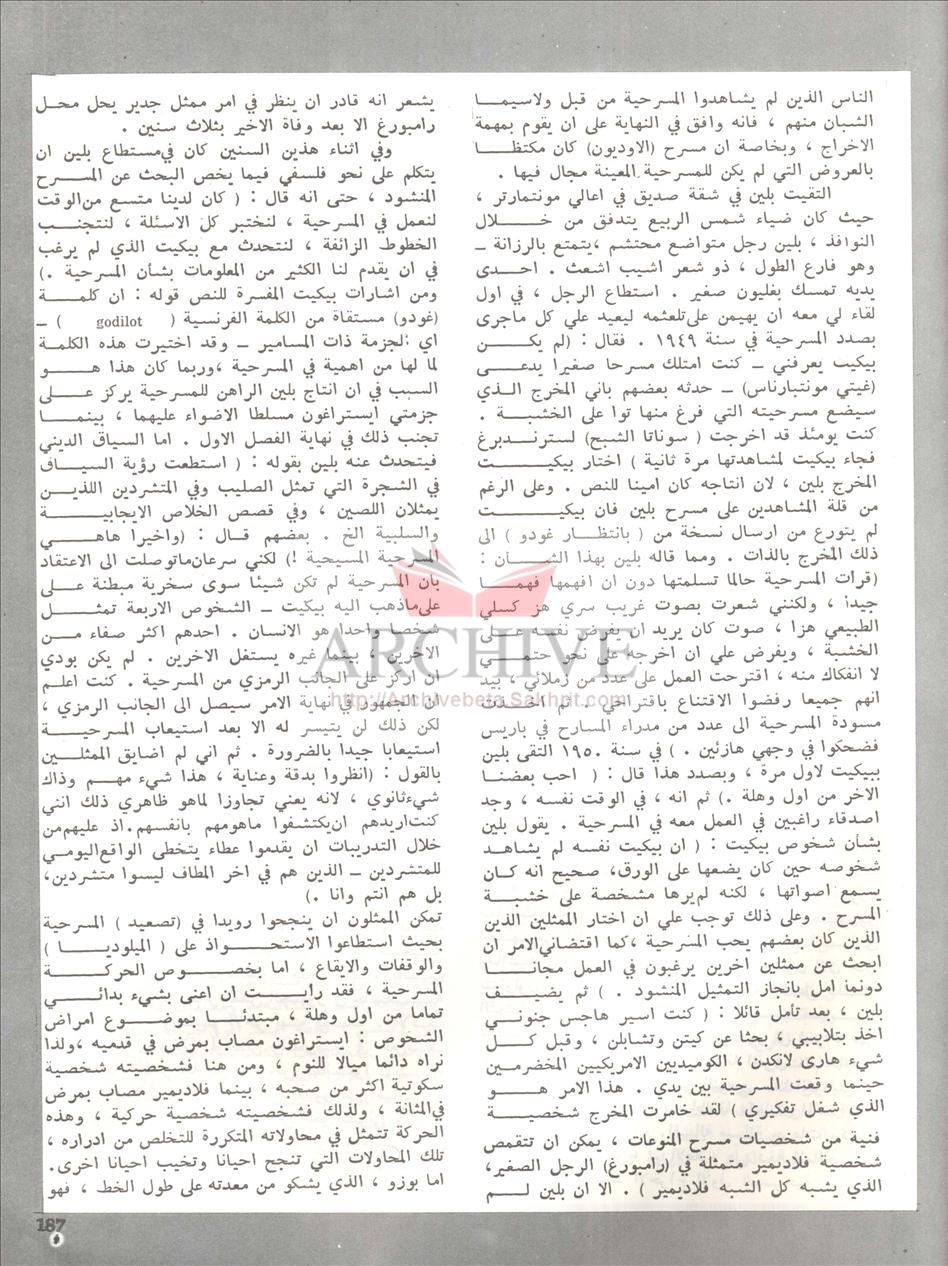 الناس الذين لم يشاهدوا المسرحية من قبل ولاسيما
الشبان منهم ، فانه وافق في النهاية على ان يقوم بمهمة
الاخراج ، وبخاصة ان مسرح (الاوديون) كان مكتظا
بالعروض التي لم يكن للمسرحية المعينة مجال فيها .
التقيت بلين في شقة صديق في اعالي مونتمارتر ،
حيث كان ضياء شمس الربيع يتدفق من خلال
النوافذ ، بلين رجل متواضع محتشم ،يتمتع بالرزانة ــ
وهو فارع الطول ، ذو شعر اشيب اشعث . احدى
يديه تمسك بغليون صغير . استطاع الرجل ، في اول
لقاء لي معه ان يهيمن على تلعثمه ليعيد علي كل ماجرى
بصدد المسرحية في سنة ١٩٤٩ . فقال : (لم يكن
بيكيت يعرفني ــ كنت امتلك مسرحا صغيرا يدعى
(غيتي مونتبارناس) ــ حدثه بعضهم باني المخرج الذي
سيضع مسرحيته التي فرغ منها توا على الخشبة .
كنت يومئذ قد اخرجت ( سوناتا الشبح) لسترندبرغ
فجاء بيكيت لمشاهدتها مرة ثانية ) اختار بيكيت
المخرج بلين ، لان انتاجه كان امينا للنص . وعلى الرغم
من قلة المشاهدين على مسرح بلين فان بيكيت
لم يتورع من ارسال نسخة من ( بانتظار غودو ) الى
ذلك المخرج بالذات . ومما قاله بلين بهذا الشان :
(قرات المسرحية حالما تسلمتها دون ان افهمها فهما
جيدا ، ولكنني شعرت بصوت غريب سري هز كسلي
الطبيعي هزا ، صوت كان يريد ان يفرض نفسه على
الخشبة ، ويفرض علي ان اخرجه على نحو حتمي
لا انفكاك منه ، اقترحت العمل على عدد من زملائي ، بيد
انهم جميعا رفضوا الاقتناع باقتراحي . ثم اخذت
مسودة المسرحية الى عدد من مدراء المسارح في باريس
فضحكوا في وجهي هازئين . ) في سنة ١٩٥٠ التقى بلين
ببيكيت لاول مرة ، وبصدد هذا قال : ( احب بعضنا
الاخر من اول وهلة .) ثم انه ، في الوقت نفسه ، وجد
اصدقاء راغبين في العمل معه في المسرحية . يقول بلين
بشأن شخوص بيكيت : ( ان بيكيت نفسه لم يشاهد
شخوصه حين كان يضعها على الورق، صحيح انه كان
يسمع اصواتها ، لكنه لم يرها مشخصة على خشبة
المسرح . وعلى ذلك توجب علي ان اختار الممثلين الذين
الذين كان بعضهم يحب المسرحية ،كما اقتضاني الامر ان
ابحث عن ممثلين اخرين يرغبون في العمل مجانا
دونما امل بانجاز التمثيل المنشود . ) ثم يضيف
بلين ، بعد تأمل قائلا : ( كنت اسير هاجس جنوني
اخذ بتلابيبي ، بحثا عن كيتن وتشابلن ، وقبل كل
شيء هارى لانكدن ، الكوميديين الامريكيين المخضرمين
حينما وقعت المسرحية بين يدي . هذا الامر هو
الذي شغل تفكيري ) لقد خامرت المخرج شخصية
فنية من شخصيات مسرح المنوعات ، يمكن ان تتقمص
شخصية فلاديمير متمثلة في (رامبورغ) الرجل الصغير،
الذي يشبه كل الشبه فلاديمير ) . الا ان بلين لم
يشعر انه قادر ان ينظر في امر ممثل جدير يحل محل
رامبورغ الا بعد وفاة الاخير بثلاث سنين .
وفي اثناء هذين السنين كان في مستطاع بلين ان
يتكلم على نحو فلسفي فيما يخص البحث عن المسرح
المنشود ، حتى انه قال : ( كان لدينا متسع من الوقت
لنعمل في المسرحية ، لنختبر كل الاسئلة ، لنتجنب
الخطوط الزائفة ، لنتحدث مع بيكيت الذي لم يرغب
في ان يقدم لنا الكثير من المعلومات بشأن المسرحية .)
ومن اشارات بيكيت المفسرة للنص قوله : ان كلمة
(غودو) مستقاة من الكلمة الفرنسية ( godilot ) ــ
اي :لجزمة ذات المسامير ــ وقد اختيرت هذه الكلمة
لما لها من اهمية في المسرحية ،وربما كان هذا هو
السبب في ان انتاج بلين الراهن للمسرحية يركز على
جزمتي ايستراغون مسلطا الاضواء عليهما ، بينما
تجنب ذلك في نهاية الفصل الاول . اما السياق الديني
فيتحدث عنه بلين بقوله : ( استطعت رؤية السياف
في الشجرة التي تمثل الصليب وفي المتشردين اللذين
يمثلان اللصين ، وفي قصص الخلاص الايجابية
والسلبية الخ . بعضهم قال : (واخيرا هاهي
المسرحية المسيحية !) لكني سرعان ماتوصلت الى الاعتقاد
بان المسرحية لم تكن شيئا سوى سخرية مبطنة على
على ماذهب اليه بيكيت ــ الشخوص الاربعة تمثل
شخصا واحدا هو الانسان . احدهم اكثر صفاء من
الاخرين ، بينما غيره يستغل الاخرين . لم يكن بودي
ان اركز على الجانب الرمزي من المسرحية . كنت اعلم
ان الجمهور في نهاية الامر سيصل الى الجانب الرمزي ،
لكن ذلك لن يتيسر له الا بعد استيعاب المسرحية
استيعابا جيدا بالضرورة . ثم اني لم اضايق الممثلين
بالقول : (انظروا بدقة وعناية ، هذا شيء مهم وذاك
شيء ثانوي ، لانه يعني تجاوزا لماهو ظاهري ذلك انني
كنت اريدهم ان يكتشفوا ماهومهم بانفسهم.اذ عليهم من
خلال التدريبات ان يقدموا عطاء يتخطى الواقع اليومي
للمتشردين ــ الذين هم في اخر المطاف ليسوا متشردين،
بل هم انتم وانا .)
تمكن الممثلون ان ينجحوا رويدا في (تصعيد ) المسرحية
بحيث استطاعوا الاستحواذ على ( الميلوديا )
والوقفات والايقاع ، اما بخصوص الحركة
المسرحية ، فقد رايت ان اعنى بشيء بدائي
تماما من اول وهلة ، مبتدئا بموضوع امراض
الشخوص : ايستراغون مصاب بمرض في قدميه ،ولذا
نراه دائما ميالا للنوم ، ومن هنا فشخصيته شخصية
سكوتية اكثر من صحبه ، بينما فلاديمير مصاب بمرض
في المثانة ، ولذلك فشخصيته شخصية حركية ، وهذه
الحركة تتمثل في محاولاته المتكررة للتخلص من ادراره ،
تلك المحاولات التي تنجح احيانا وتخيب احيانا اخرى.
اما بوزو ، الذي يشكو من معدته على طول الخط ، فهو
ARCHIVE
http://Archivebeta.Sakhrit.com
187